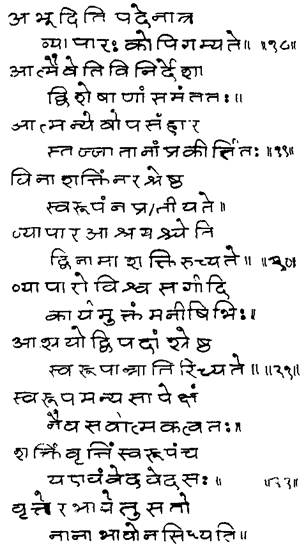 अभूदिति पदेनात्र
व्यापारः कोपिगम्यते॥ ॥१८॥
आत्मैवेति विनिर्देशा
द्विशेषाणां समंततः॥
आत्मन्येवोपसंहार
स्तज्जातानां प्रकीर्तितः॥१९॥
विना शक्तिं नरश्रेष्ठ
स्वरूपं न प्रतीयते॥
व्यापार आश्रयश्चेति
द्विनामा शक्तिरुच्यते॥॥२०॥
व्यापारो विश्वसर्गादि
कार्यमुक्तं मनीषिभिः॥
आश्रयो द्विपदां श्रेष्ठ
स्वरूपान्नातिरिच्यते॥॥२१॥
स्वरूपमन्यसापेक्षं
नैव सर्वात्मकत्वतः॥
शक्तिं वृत्तिं स्वरूपं च
वेद
वृत्तेरभावे तु सतो
नानाभावो न सिध्यति॥